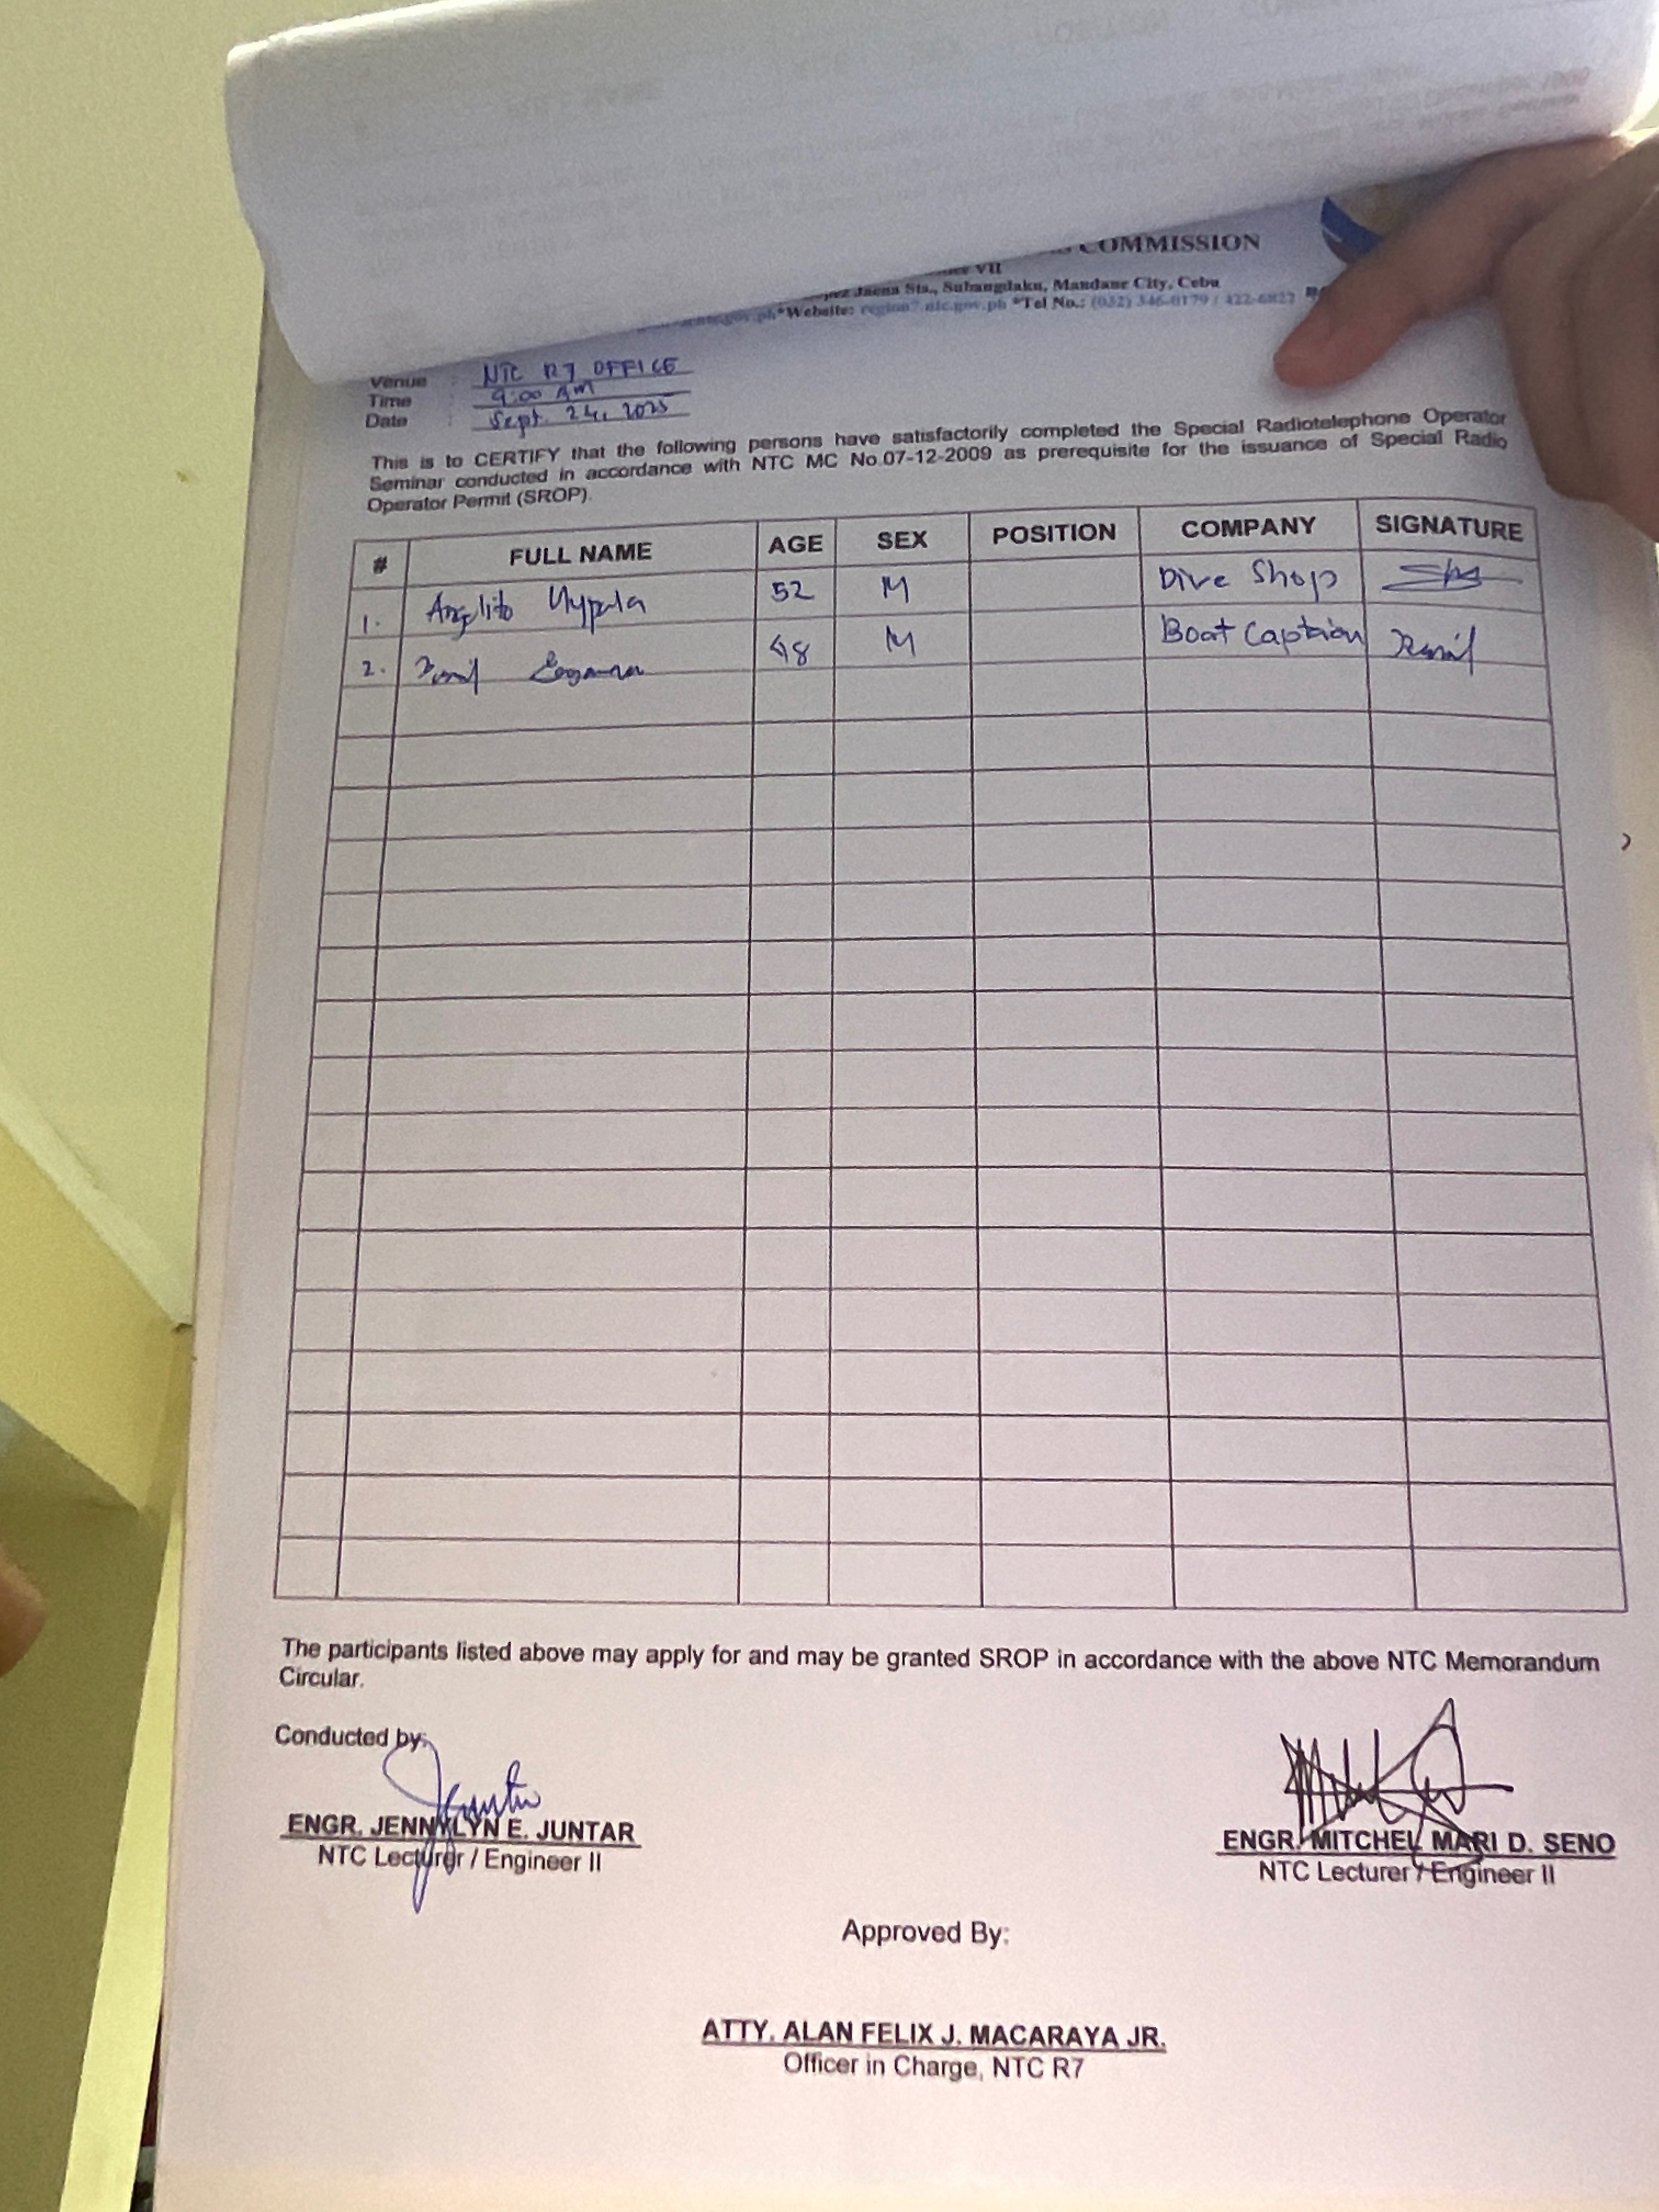 COMMISSION
VII
Jaena Sts., Subangdaku, Mandaue City, Cebu
*Website: region7.ntc.gov.ph *Tel No.: (032) 346-0179 / 422-6827
Venue : NTC R7 OFFICE
Time : 9:00 AM
Date : Sept. 24, 2025
This is to CERTIFY that the following persons have satisfactorily completed the Special Radiotelephone Operator
Seminar conducted in accordance with NTC MC No.07-12-2009 as prerequisite for the issuance of Special Radio
Operator Permit (SROP).
# FULL NAME AGE SEX POSITION COMPANY SIGNATURE
1. Angelito 52 M Dive Shop
2. 48 M Boat Captain
The participants listed above may apply for and may be granted SROP in accordance with the above NTC Memorandum
Circular.
Conducted by:
ENGR. JENNYLYN E. JUNTAR
NTC Lecturer / Engineer II
ENGR. MITCHEL MARI D. SENO
NTC Lecturer / Engineer II
Approved By:
ATTY. ALAN FELIX J. MACARAYA JR.
Officer in Charge, NTC R7